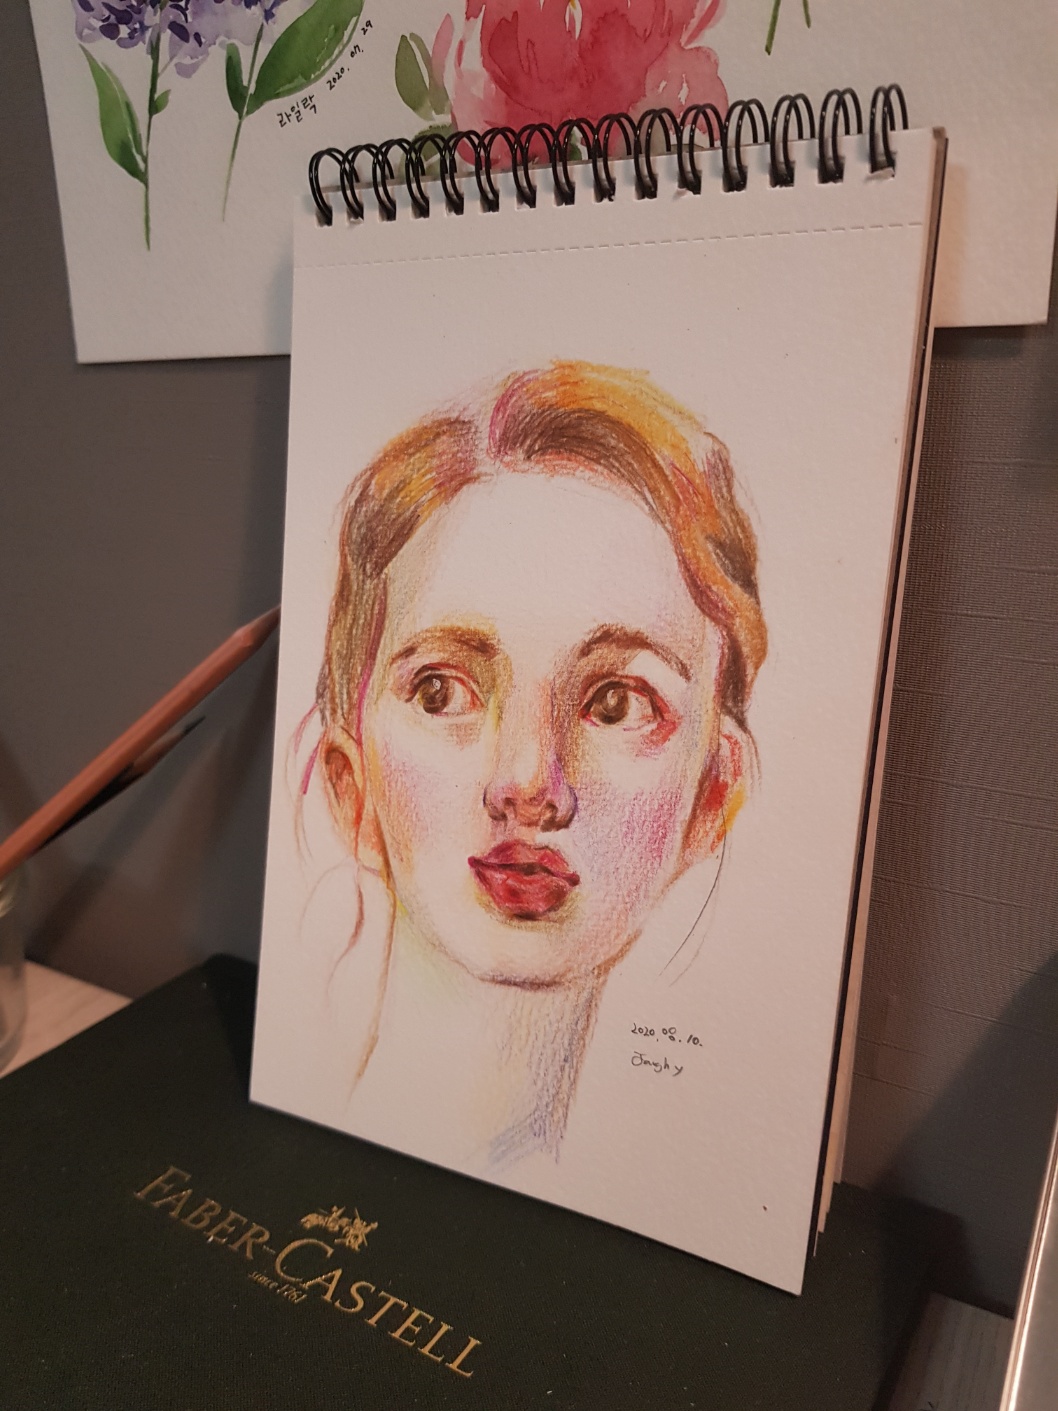 라일락 2020. 07. 29
2020. 08. 10.
Jaghy
FABER-CASTELL
since 1761